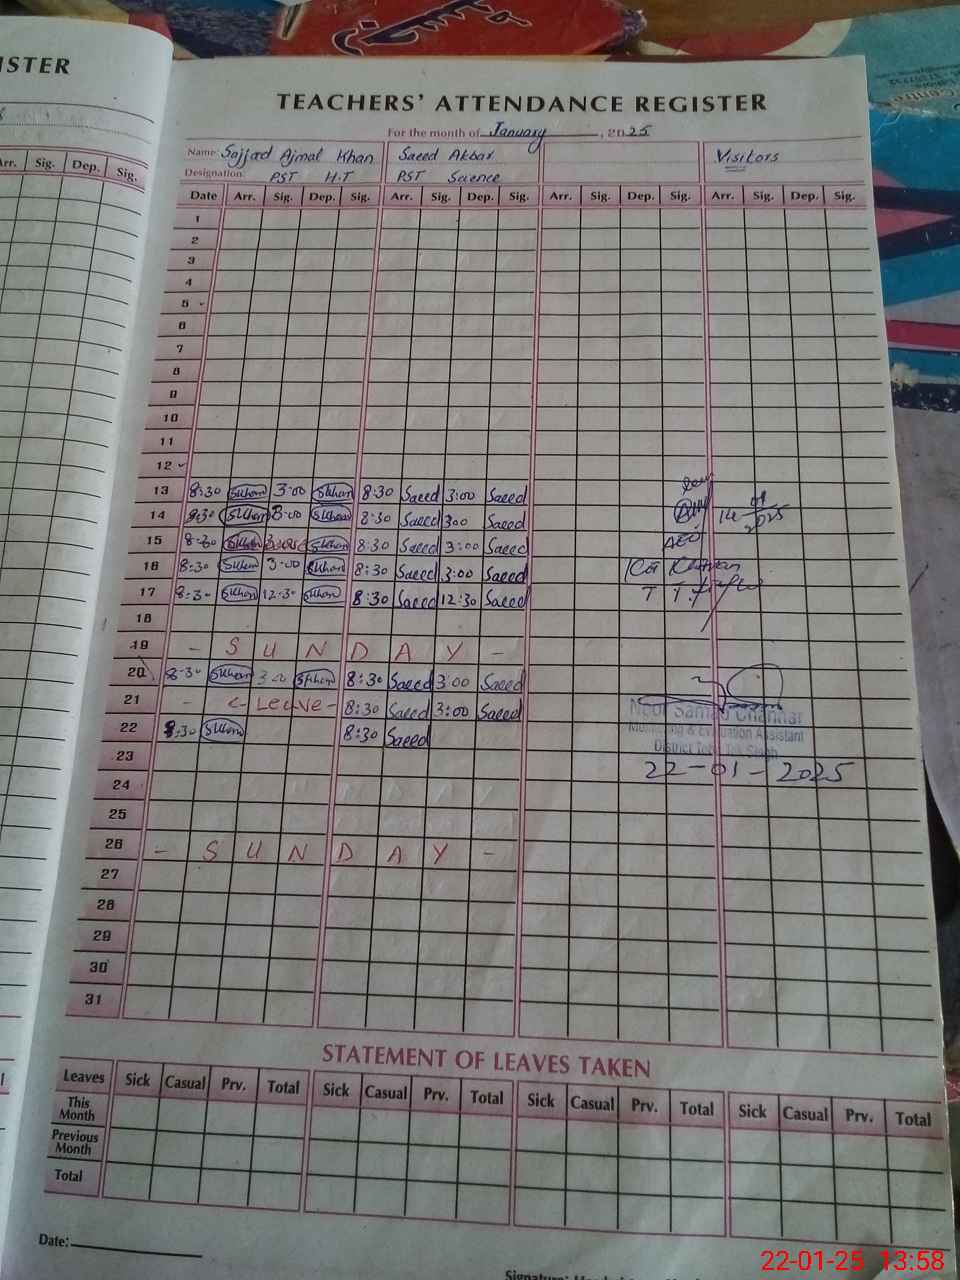 ISTER
Arr. Sig. Dep. Sig.
TEACHERS' ATTENDANCE REGISTER
For the month of January, 2025
Name: Sajjad Ajmal Khan Saeed Akbar Visitors
Designation: PST H.T PST Science
Date Arr. Sig. Dep. Sig. Arr. Sig. Dep. Sig. Arr. Sig. Dep. Sig. Arr. Sig. Dep. Sig.
1
2
3
4
5
6
7
8
9
10
11
12
13 8:30 SKhan 3:00 SKhan 8:30 Saeed 3:00 Saeed
14 8:30 SKhan 3:00 SKhan 8:30 Saeed 3:00 Saeed 14 01 2025
15 8:30 SKhan SKhan 8:30 Saeed 3:00 Saeed AEO
16 8:30 SKhan 3:00 SKhan 8:30 Saeed 3:00 Saeed
17 8:30 SKhan 12:30 SKhan 8:30 Saeed 12:30 Saeed
18
19 - S U N D A Y -
20 8:30 SKhan 3:00 SKhan 8:30 Saeed 3:00 Saeed
21 - <- Leave - 8:30 Saeed 3:00 Saeed
22 8:30 SKhan 8:30 Saeed
Monitoring & Evaluation Assistant
District Toba Tek Singh
23 22-01-2025
24
25
26 - S U N D A Y -
27
28
29
30
31
STATEMENT OF LEAVES TAKEN
Leaves Sick Casual Prv. Total Sick Casual Prv. Total Sick Casual Prv. Total Sick Casual Prv. Total
This Month
Previous Month
Total
Date:
22-01-25 13:58